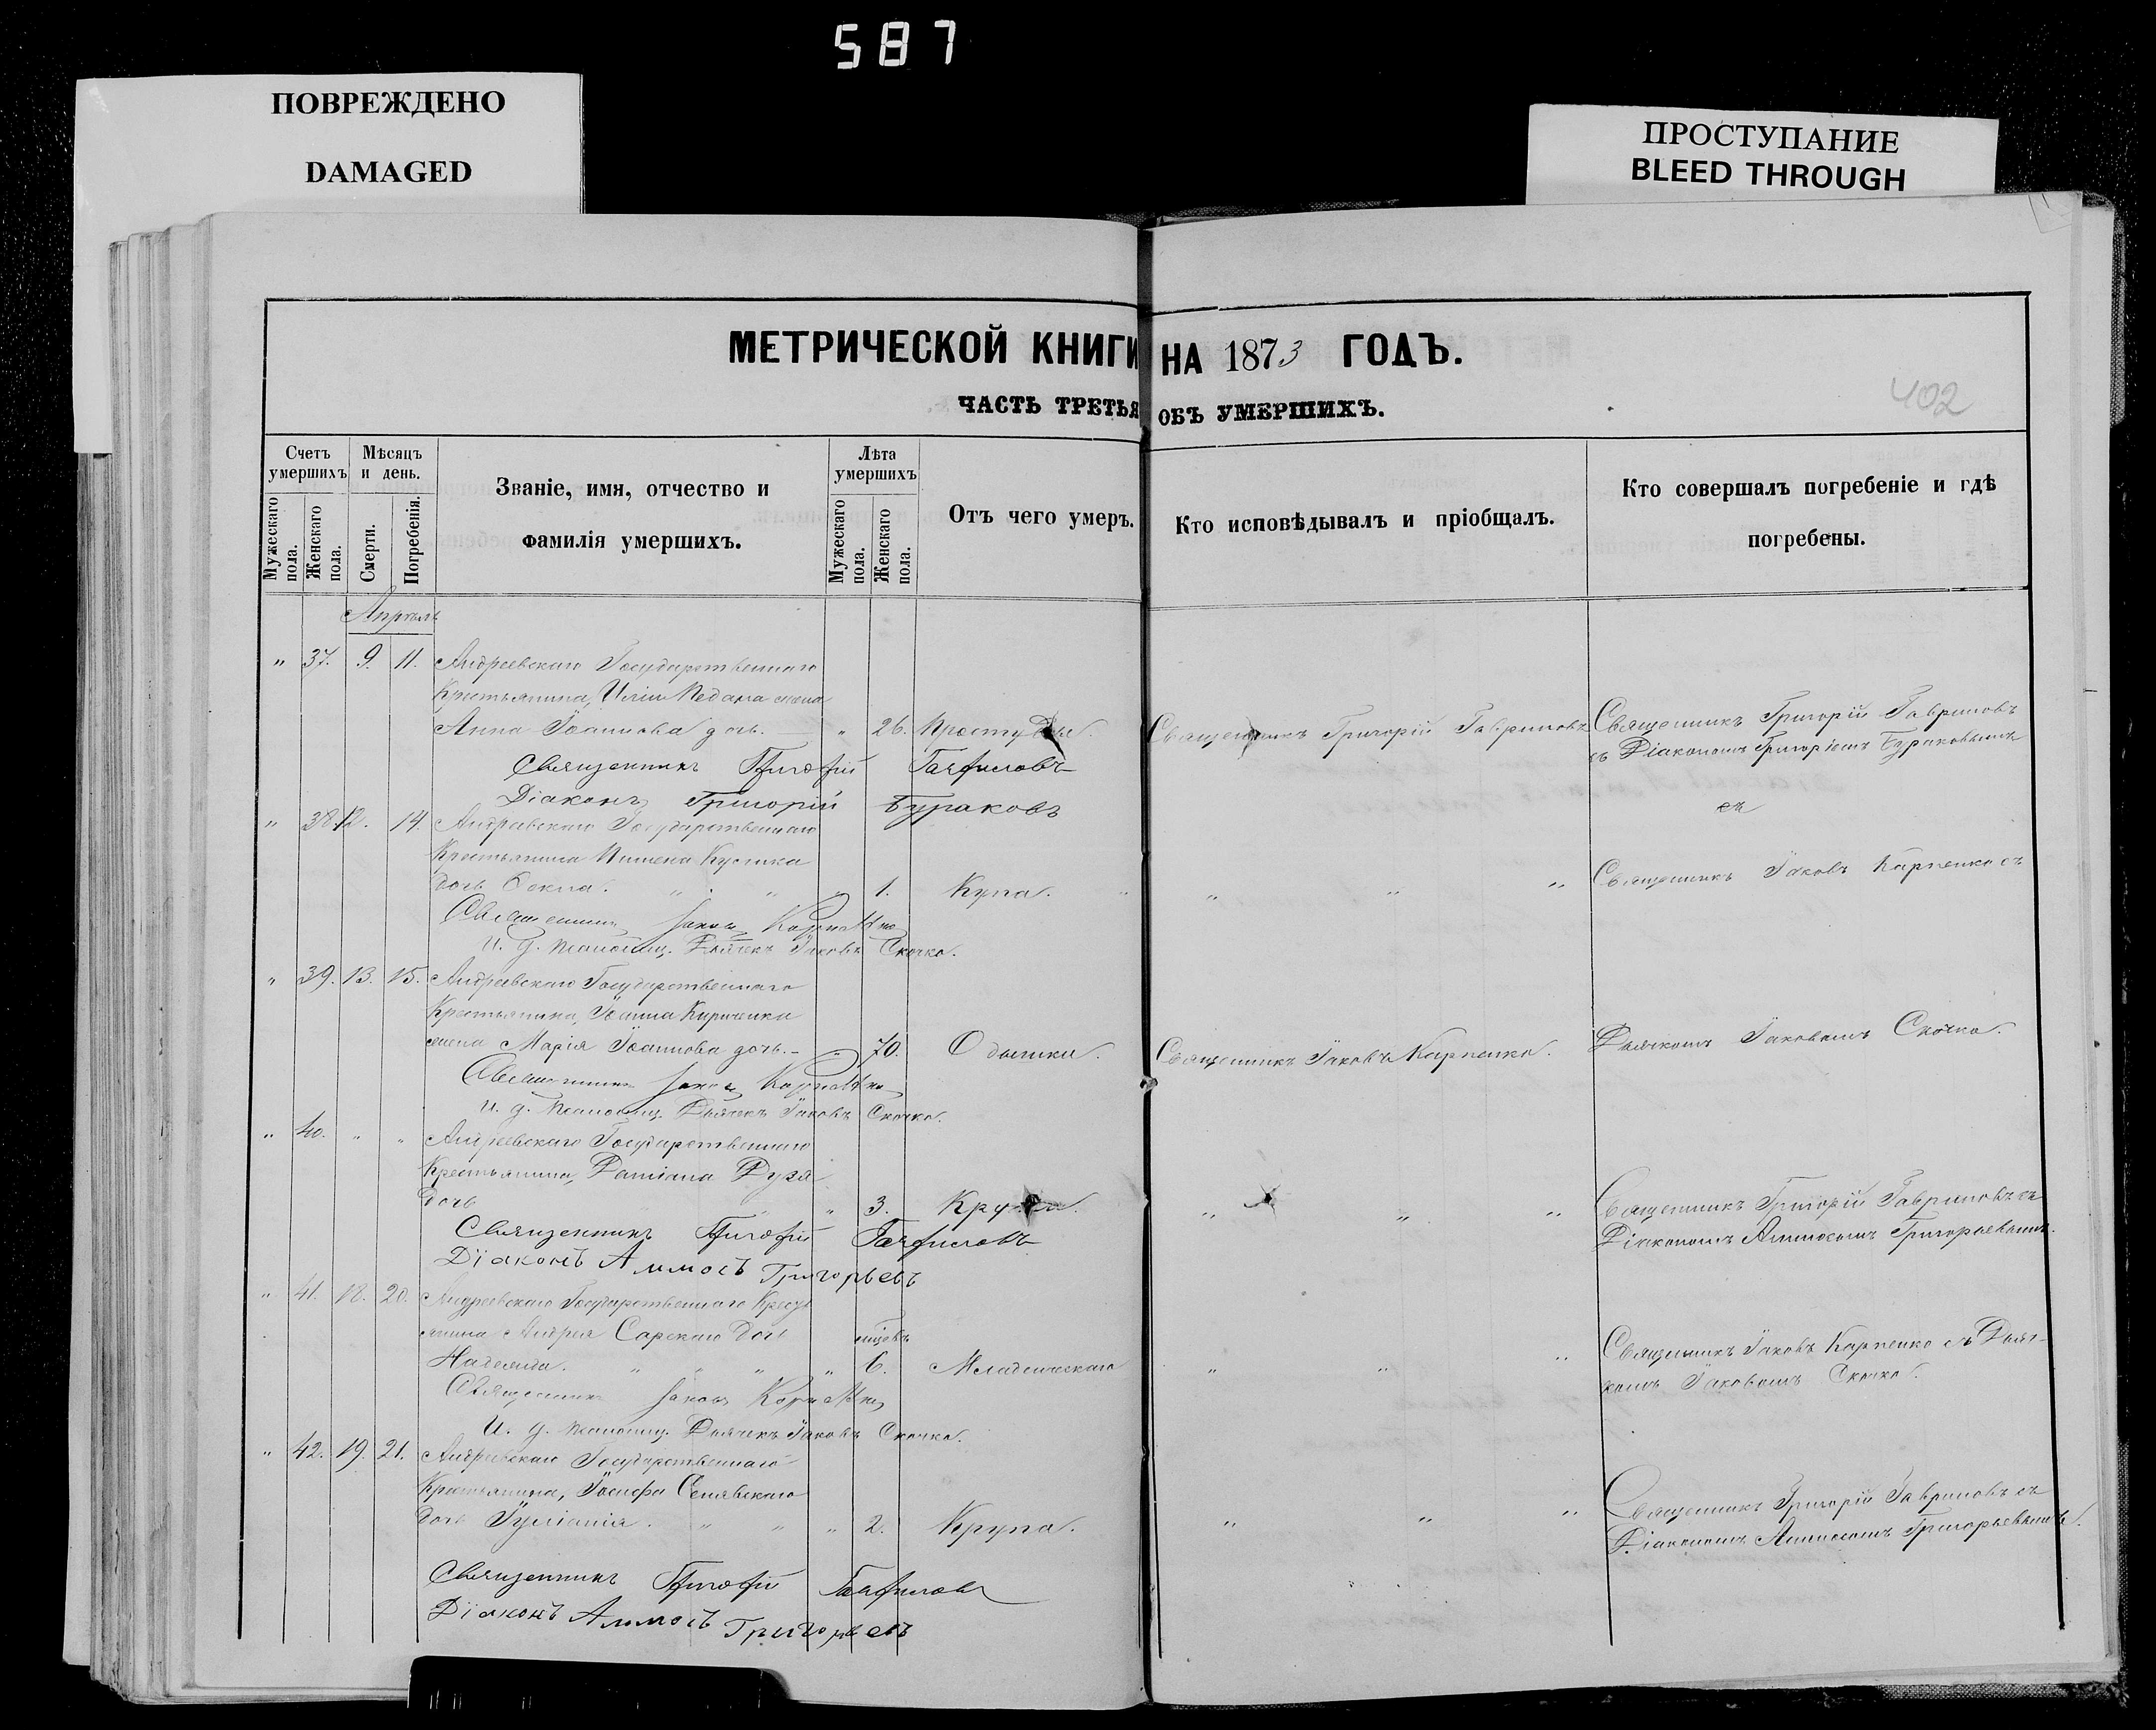 587
ПОВРЕЖДЕНО
DAMAGED
ПРОСТУПАНИЕ
BLEED THROUGH
МЕТРИЧЕСКОЙ КНИГИ НА 1873 ГОДЪ.
ЧАСТЬ ТРЕТЬЯ ОБЪ УМЕРШИХЪ.
402
Счетъ умершихъ
Мужескаго пола.
Женскаго пола.
Мѣсяцъ и день.
Смерти.
Погребенія.
Званіе, имя, отчество и
фамилія умершихъ.
Лѣта умершихъ
Мужескаго пола.
Женскаго пола.
Отъ чего умеръ.
Кто исповѣдывалъ и пріобщалъ.
Кто совершалъ погребеніе и гдѣ
погребены.
Апрѣль
" 37. 9. 11. Андреевскаго Государственнаго
Крестьянина, Иліи жена
Анна Іоаннова дочь. " 26. Простуды. Священникъ Григорій Гавриловъ Священникъ Григорій Гавриловъ
съ Діакономъ Григоріемъ Бураковымъ
Священникъ Григорій Гавриловъ
Діаконъ Григорій Бураковъ
съ
" 38. 12. 14. Андреевскаго Государственнаго
Крестьянина дочь " " " 1. Крупа. " " " Священникъ Іаковъ Карпенко съ
Священникъ Іаковъ Карпенко
И. д. Псаломщ. Дьячекъ Іаковъ Скочко.
" 39. 13. 15. Андреевскаго Государственнаго
Крестьянина, Іоанна Кириченка
жена Марія Іоаннова дочь. " 70. Одышки. Священникъ Іаковъ Карпенко. Дьячкомъ Іаковомъ Скочко.
Священникъ Іаковъ Карпенко
И. д. Псаломщ. Дьячекъ Іаковъ Скочко.
" 40. " " Андреевскаго Государственнаго
Крестьянина, Даміана
дочь " 3. Крупа. " " " Священникъ Григорій Гавриловъ съ
Діакономъ Аммосомъ Григорьевымъ.
Священникъ Григорій Гавриловъ
Діаконъ Аммосъ Григорьевъ
" 41. 18. 20. Андреевскаго Государственнаго Кресть
янина Андрея Сарскаго дочь мѣсяцевъ
Надежда. " " " " 6. Младенческаго " " " Священникъ Іаковъ Карпенко съ Дьяч-
комъ Іаковомъ Скочко.
Священникъ Іаковъ Карпенко
И. д. Псаломщ. Дьячекъ Іаковъ Скочко.
" 42. 19. 21. Андреевскаго Государственнаго
Крестьянина, Іосифа Сенявскаго
дочь Іуліанія. " " " 2. Крупа. " " " Священникъ Григорій Гавриловъ съ
Діакономъ Аммосомъ Григорьевымъ.
Священникъ Григорій Гавриловъ
Діаконъ Аммосъ Григорьевъ